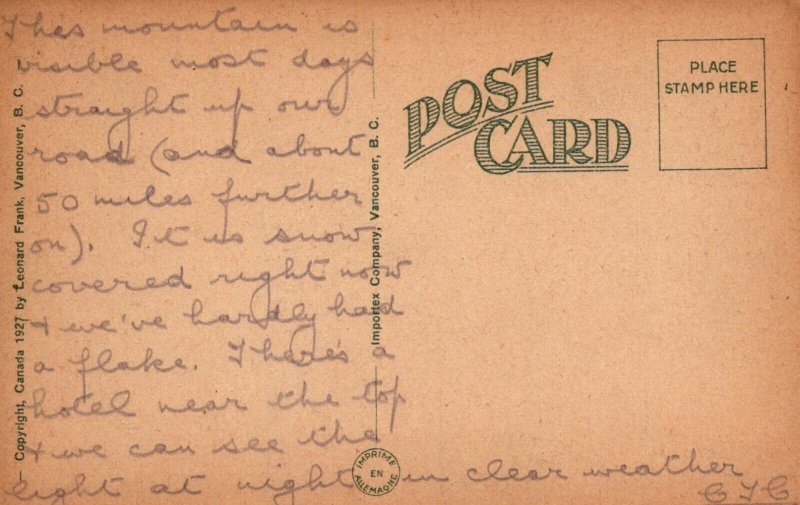 This mountain is
visible most days
straight up our
road (and about
50 miles further
on). It is snow
covered right now
+ we've hardly had
a flake. There's a
hotel near the top
+ we can see the
light at night in clear weather
CJC
POST
CARD
PLACE
STAMP HERE
— Copyright, Canada 1927 by Leonard Frank, Vancouver, B. C.
Importex Company, Vancouver, B. C.
IMPRIME
EN
ALLEMAGNE